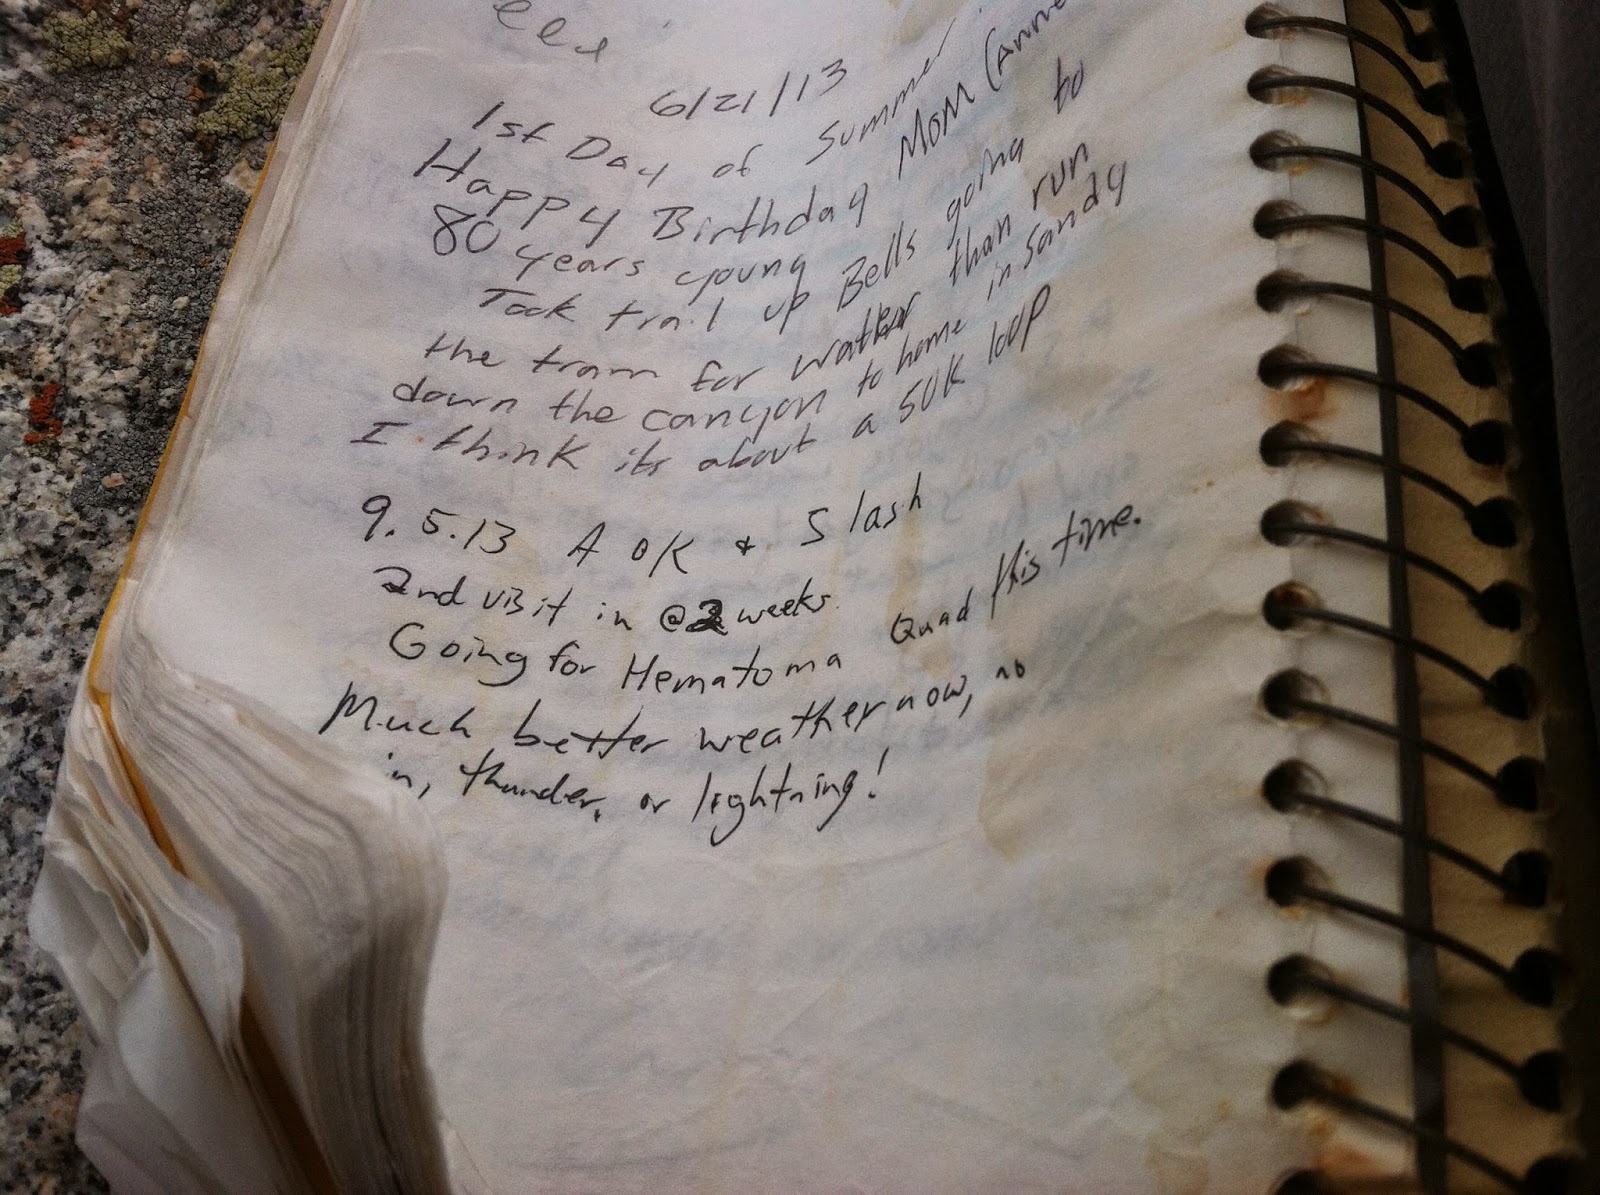 6/21/13
1st Day of Summer
Happy Birthday Mom (Anne
80 years young
Took trail up Bells going to
the tram for water than run
down the canyon to home in Sandy
I think its about a 50K loop
9.5.13 A OK + Slash
2nd visit in @2 weeks.
Going for Hematoma Quad this time.
Much better weather now, no
in, thunder, or lightning!